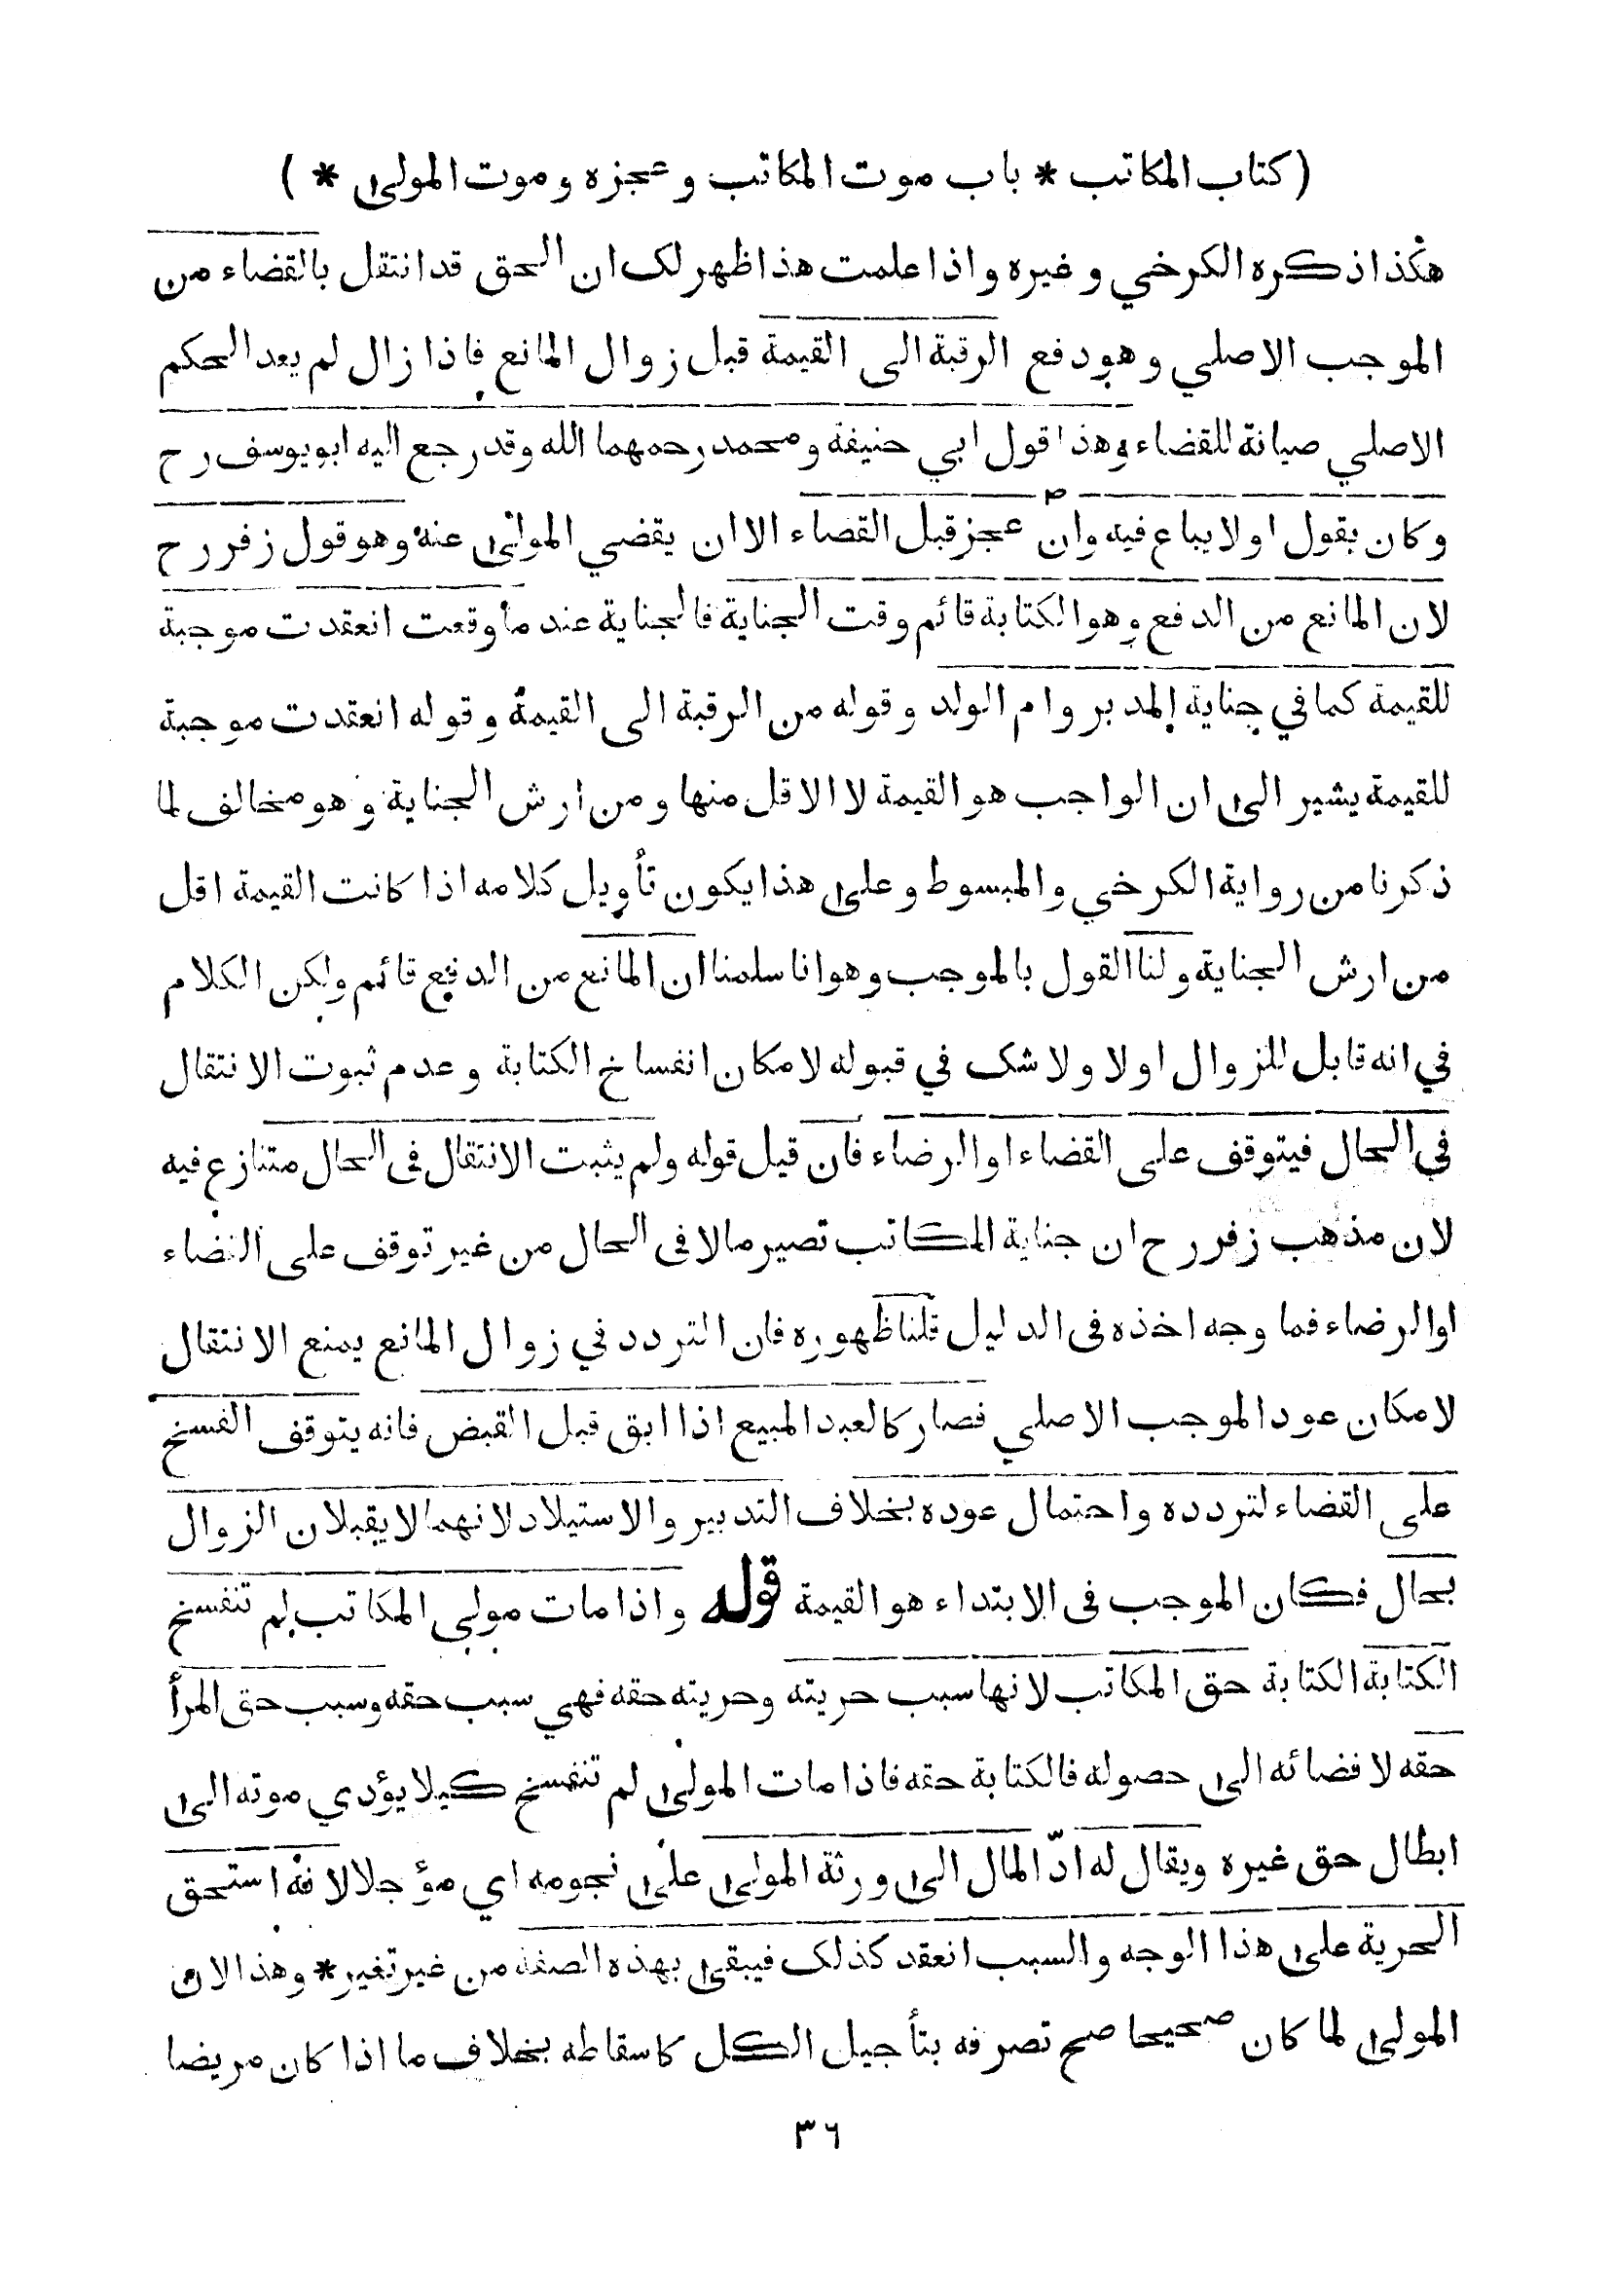 (كتاب المكاتب * باب موت المكاتب وعجزه وموت المولى * )
هكذا ذكره الكرخي وغيره واذا علمت هذا ظهر لك ان الحق قد انتقل بالقضاء من
الموجب الاصلي وهو دفع الرقبة الى القيمة قبل زوال المانع فاذا زال لم يعد الحكم
الاصلي صيانة للقضاء وهذا قول ابي حنيفة ومحمد رحمهما الله وقد رجع اليه ابو يوسف رح
وكان يقول اولا يباع فيه وان عجز قبل القضاء الا ان يقضي المولى عنه وهو قول زفر رح
لان المانع من الدفع وهو الكتابة قائم وقت الجناية فالجناية عند ما وقعت انعقدت موجبة
للقيمة كما في جناية المدبر وام الولد وقوله من الرقبة الى القيمة وقوله انعقدت موجبة
للقيمة يشير الى ان الواجب هو القيمة لا الاقل منها ومن ارش الجناية وهو مخالف لما
ذكرنا من رواية الكرخي والمبسوط وعلى هذا يكون تأويل كلامه اذا كانت القيمة اقل
من ارش الجناية ولنا القول بالموجب وهو انا سلمنا ان المانع من الدفع قائم ولكن الكلام
في انه قابل للزوال اولا ولا شك في قبوله لامكان انفساخ الكتابة وعدم ثبوت الانتقال
في الحال فيتوقف على القضاء او الرضاء فان قيل قوله ولم يثبت الانتقال في الحال متنازع فيه
لان مذهب زفر رح ان جناية المكاتب تصير مالا في الحال من غير توقف على القضاء
او الرضاء فما وجه اخذه في الدليل قلنا ظهوره فان التردد في زوال المانع يمنع الانتقال
لامكان عود الموجب الاصلي فصار كالعبد المبيع اذا ابق قبل القبض فانه يتوقف الفسخ
على القضاء لتردده واحتمال عوده بخلاف التدبير والاستيلاد لانهما لا يقبلان الزوال
بحال فكان الموجب في الابتداء هو القيمة قوله واذا مات مولى المكاتب لم تنفسخ
الكتابة الكتابة حق المكاتب لانها سبب حريته وحريته حقه فهي سبب حقه وسبب حق المرأ
حقه لافضائه الى حصوله فالكتابة حقه فاذا مات المولى لم تنفسخ كيلا يؤدي موته الى
ابطال حق غيره ويقال له ادّ المال الى ورثة المولى على نجومه اي مؤجلا لانه استحق
الحرية على هذا الوجه والسبب انعقد كذلك فيبقى بهذه الصفة من غير تغير * وهذا لان
المولى لما كان صحيحا صح تصرفه بتأجيل الكل كاسقاطه بخلاف ما اذا كان مريضا
٣٦